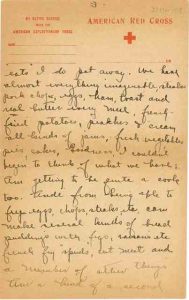 3
ON ACTIVE SERVICE
WITH THE
AMERICAN EXPEDITIONARY FORCE
AMERICAN RED CROSS
eats I do put away. We have
almost everything imaginable, steaks
pork chops, eggs, ham, toast and
real butter every meal, french
fried potatoes, peaches & cream
all kinds of jams, fresh vegetables
pies cakes, Goodness I couldn't
begin to think of what we have. I
am getting to be quite a cook
too. Aside from being able to
fry eggs, chops, steaks etc. can
make several kinds of bread
puddings with figs, raisins etc
french fry spuds, cut meat and
a number of other things
Am a kind of a second